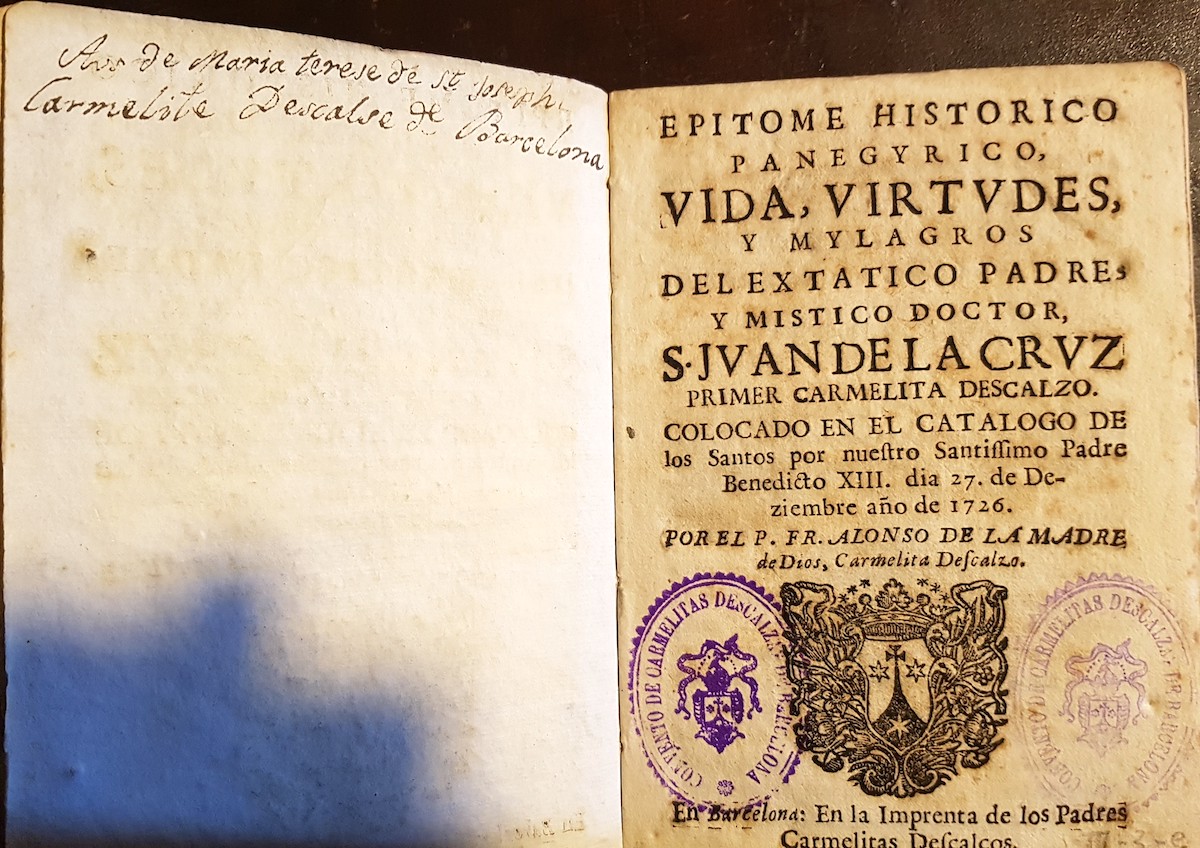 Aus de Maria terese de st Joseph
Carmelite Descalse de Barcelona
EPITOME HISTORICO
PANEGYRICO,
VIDA, VIRTVDES,
Y MYLAGROS
DEL EXTATICO PADRE,
Y MISTICO DOCTOR,
S. JVAN DE LA CRVZ
PRIMER CARMELITA DESCALZO.
COLOCADO EN EL CATALOGO DE
los Santos por nueſtro Santiſſimo Padre
Benedicto XIII. dia 27. de De-
ziembre año de 1726.
POR EL P. FR. ALONSO DE LA MADRE
de Dios, Carmelita Deſcalzo.
CONVENTO DE CARMELITAS DESCALZAS DE BARCELONA
CONVENTO DE CARMELITAS DESCALZAS DE BARCELONA
En Barcelona: En la Imprenta de los Padres
Carmelitas Deſcalços.